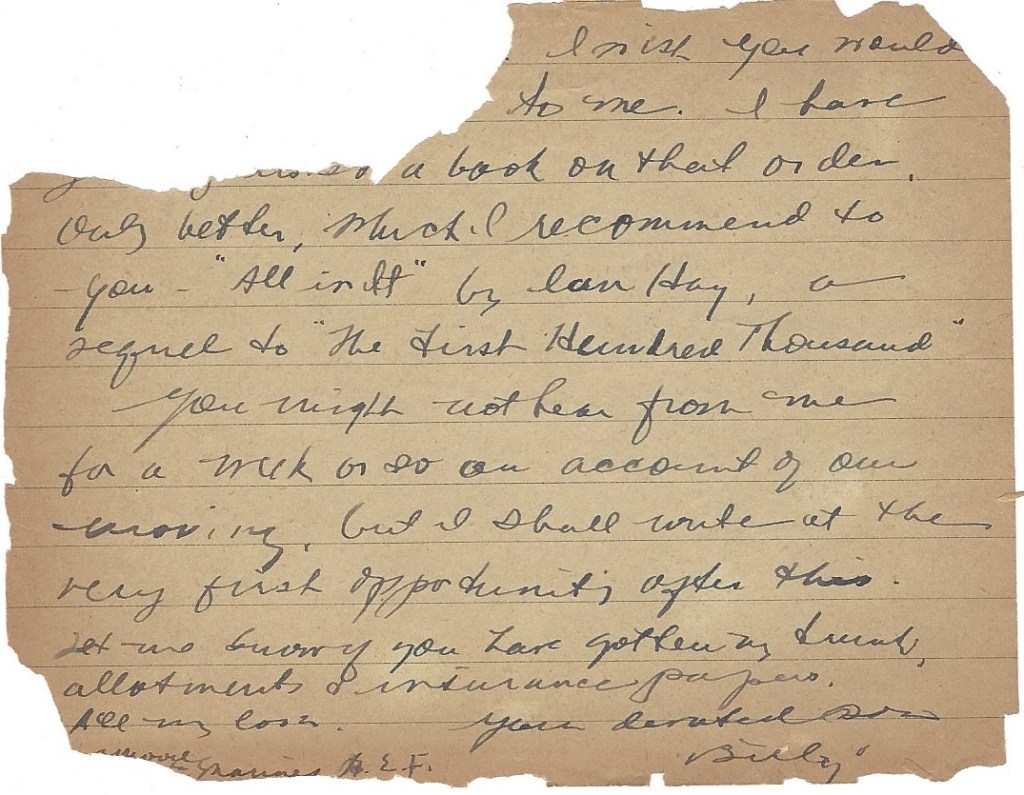 I wish you would
to me. I have
a book on that order,
only better, much. I recommend to
you - "All in It" by Ian Hay, a
sequel to "The First Hundred Thousand"
You might not hear from me
for a week or so on account of our
moving, but I shall write at the
very first opportunity after this.
Let me know if you have gotten my trunk,
allotments & insurance papers.
All my love. Your devoted son
Billy"
Marines A.E.F.